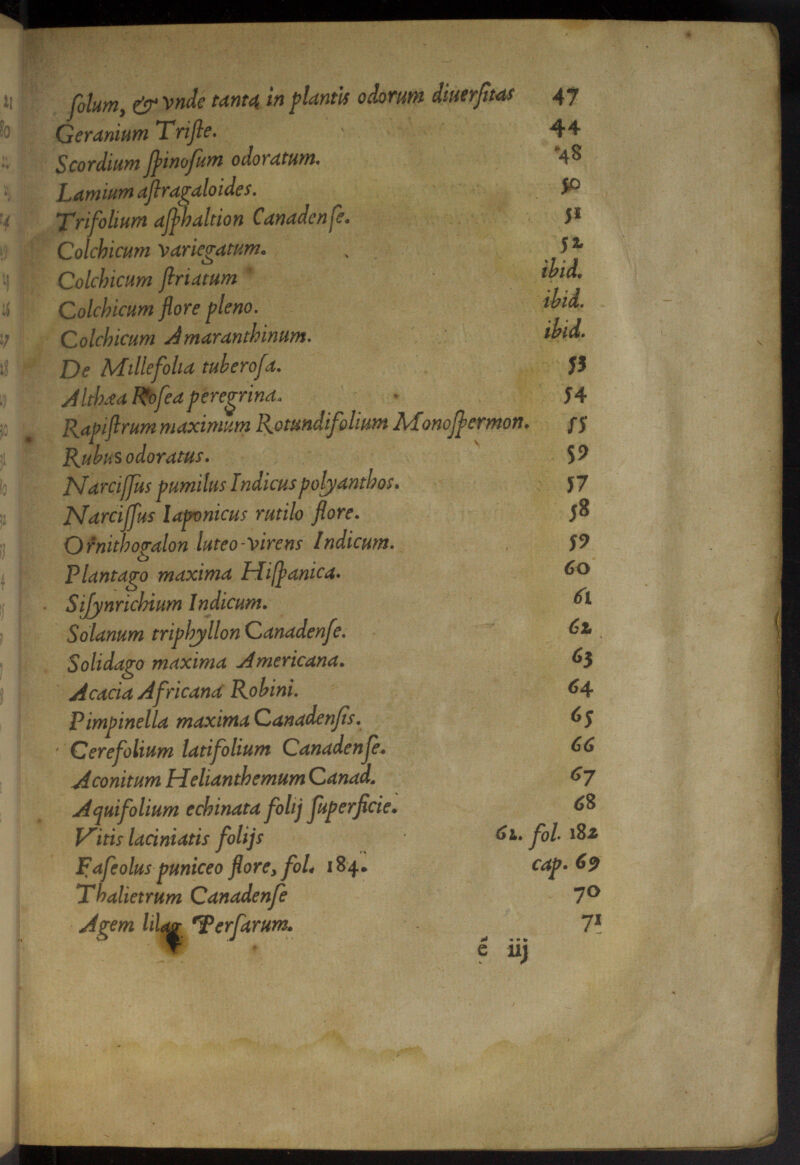 ſolum, & vnde tanta in plantis odorum diuerſitas 47
Geranium Triſte. 44
Scordium ſpinoſum odoratum. 48
Lamium aſtragaloides. 50
Trifolium aſphaltion Canadenſe. 51
Colchicum variegatum. 52
Colchicum ſtriatum ibid.
Colchicum flore pleno. ibid.
Colchicum Amaranthinum. ibid.
De Millefolia tuberoſa. 53
Althæa Roſea peregrina. 54
Rapiſtrum maximum Rotundifolium Monoſpermon. 55
Rubus odoratus. 59
Narciſſus pumilus Indicus polyanthos. 57
Narciſſus Iaponicus rutilo flore. 58
Ornithogalon luteo-virens Indicum. 59
Plantago maxima Hiſpanica. 60
Siſynrichium Indicum. 61
Solanum triphyllon Canadenſe. 62
Solidago maxima Americana. 63
Acacia Africana Robini. 64
Pimpinella maxima Canadenſis. 65
Cerefolium latifolium Canadenſe. 66
Aconitum Helianthemum Canad. 67
Aquifolium echinata folij ſuperficie. 68
Vitis laciniatis folijs 61. fol. 182
Faſeolus puniceo flore, fol. 184. cap. 69
Thalietrum Canadenſe 70
Agem lilag Perſarum. 71
é iij